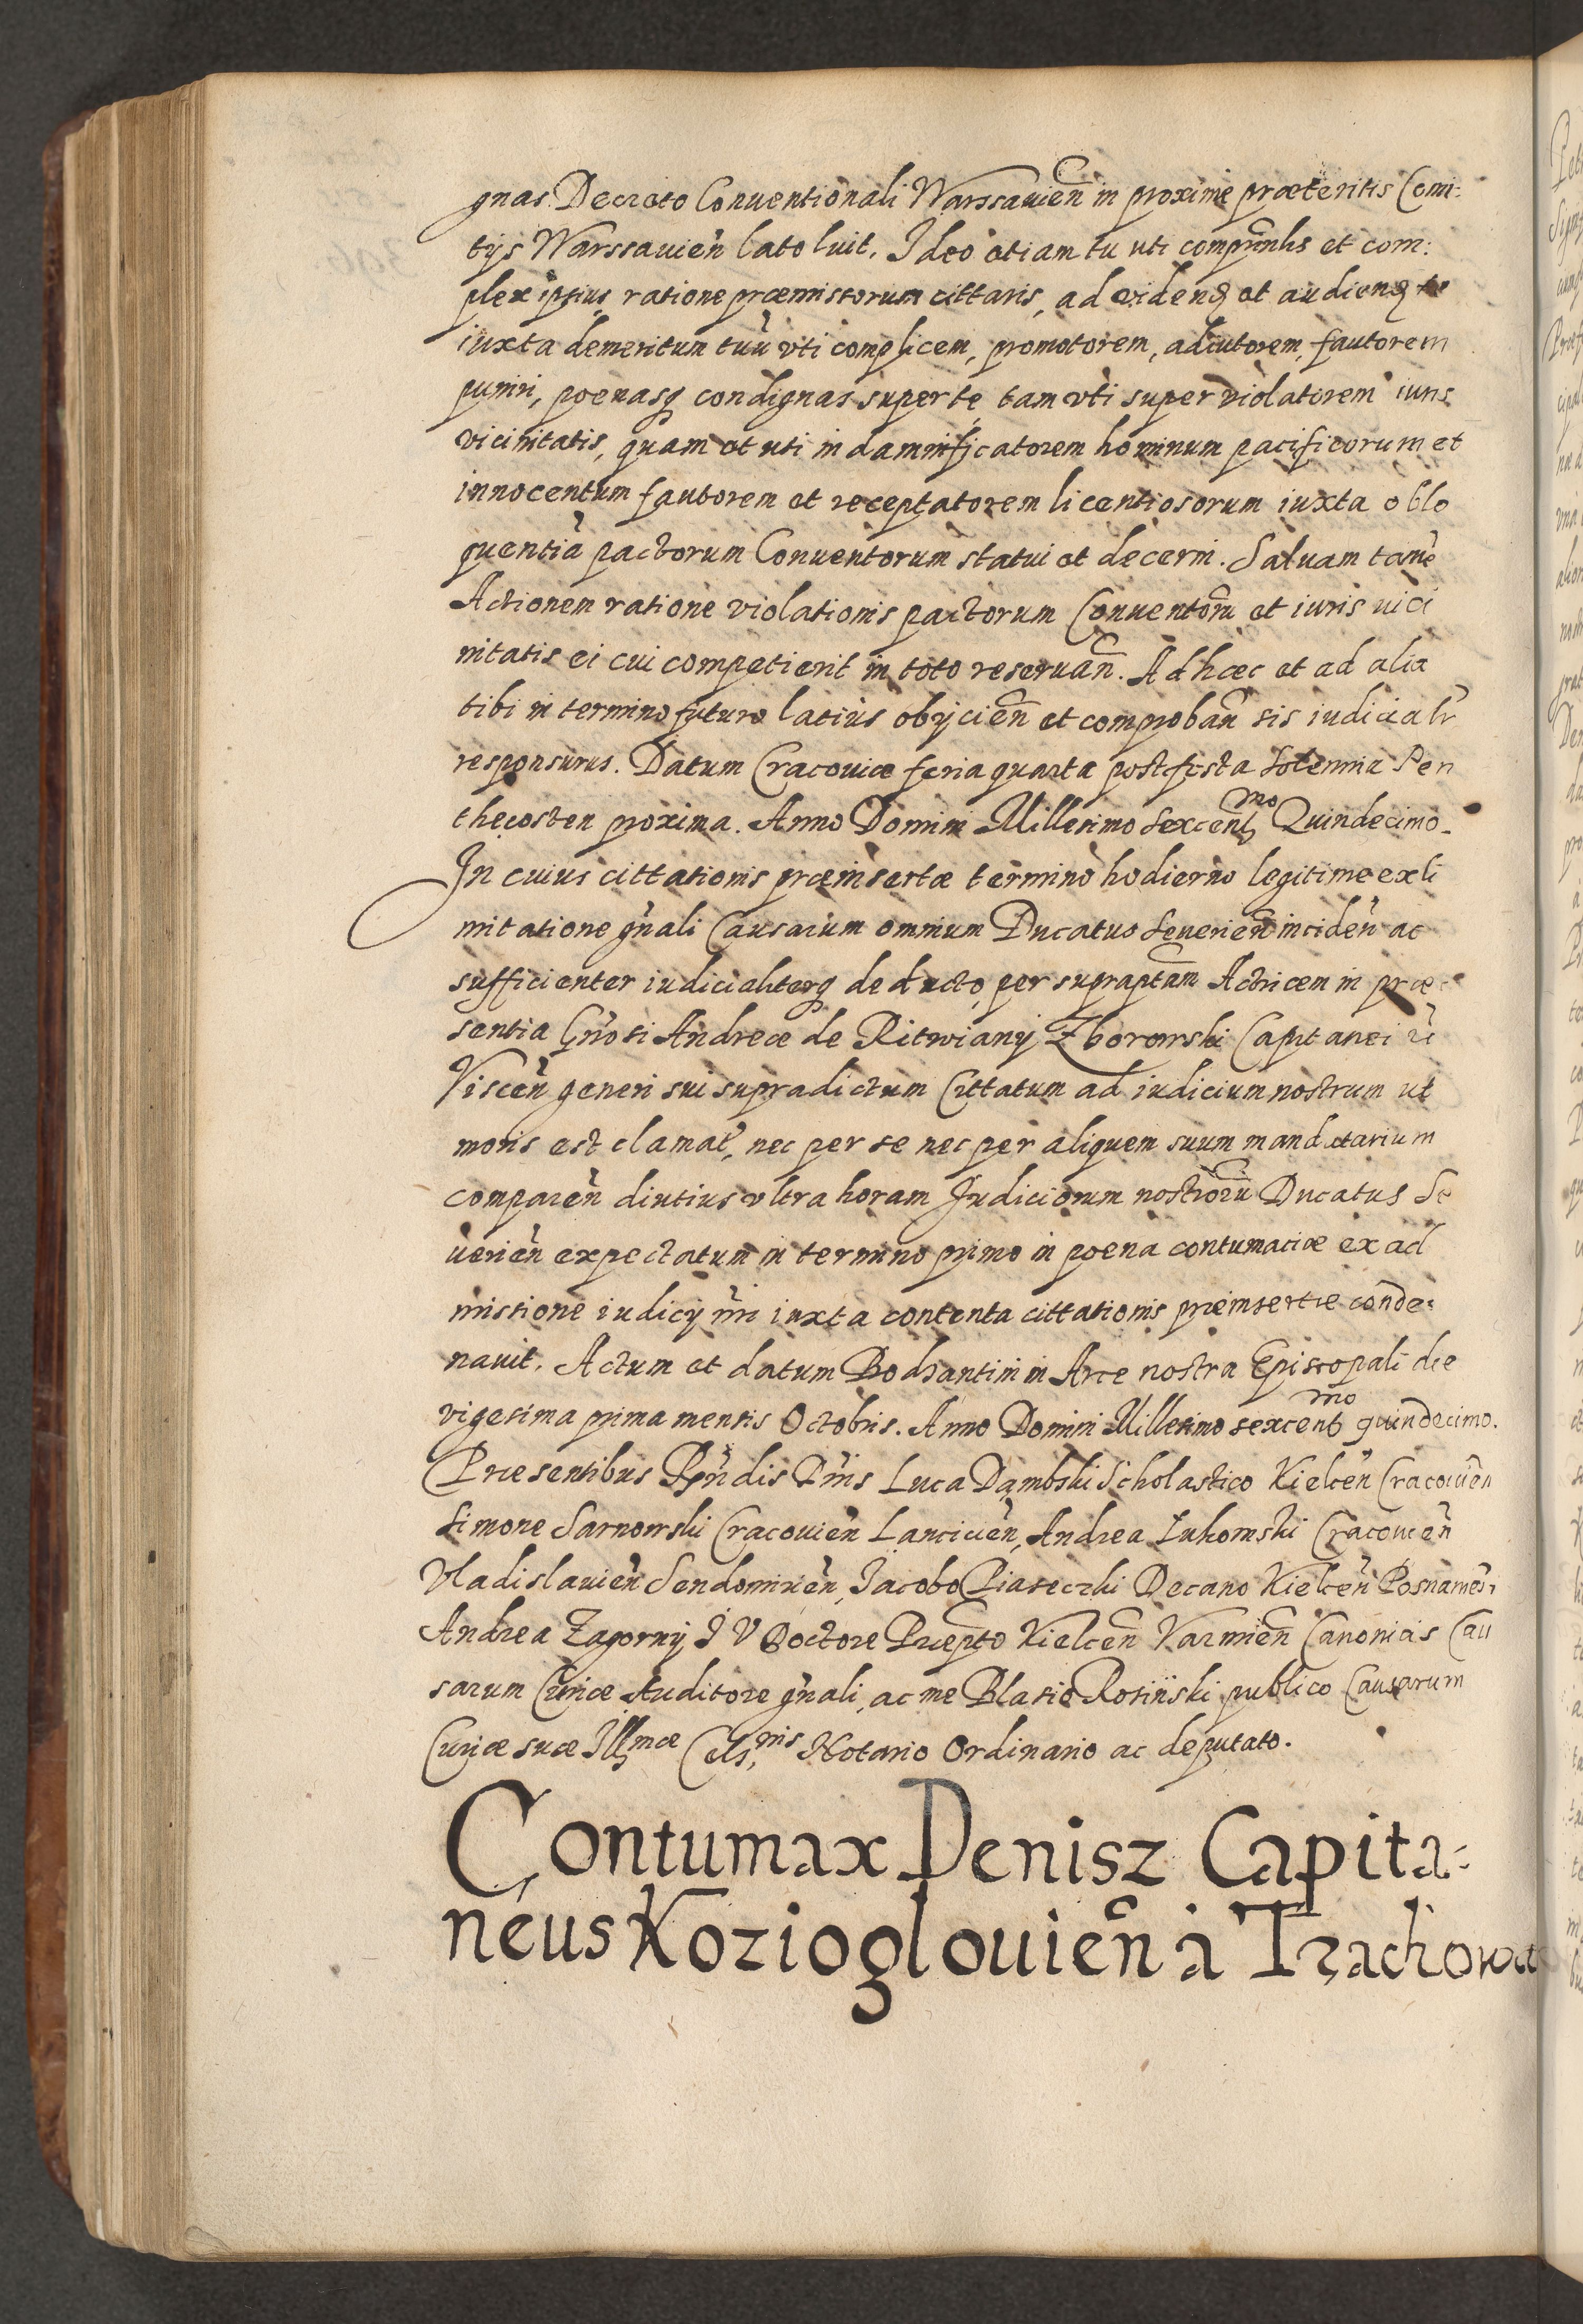 gnas. Decreto Conventionali Warssauien̄ in proxime præteritis Comi:
tijs Warssauien̄ lato luit. Ideo etiam tu uti comprīnlis et com:
plex ipsius, ratione præmissorum cittaris, ad videnq et audienq te
iuxta demeritum tuū vti complicem, promotorem, adiutorem, fautorem
puniri, poenasq condignas super te, tam vti super violatorem iuris
vicinitatis, quam et uti in damnificatorem hominum pacificorum et
innocentum fautorem et receptatorem licentiosorum iuxta oblo
quentiā pactorum Conuentorum statui et decerni. Saluam tamē
Actionem ratione violationis pactorum Conuentorū et iuris vici
nitatis ei cui competierit in toto reseruan̄. Ad hæc et ad alia
tibi in termino futuro latius obijcien̄ et comproban̄ sis iudicialr̄
responsurus. Datum Cracouiæ feria quarta post festa Solennia Pen
thecosten proxima. Anno Domini Millesimo Sexcentᵐᵒ Quindecimo.
In cuius cittationis præinsertæ termino hodierno legitime ex li
mitatione gn̄ali Causarum omnium Ducatus Seuerien̄ inciden̄ ac
sufficienter iudicialiterq deducto, per supraptam̄ Actricem in præ
sentia Gn̄osi Andreæ de Ritwiany Zborowski Capitanei
Viscen̄ generi sui supradictum Cittatum ad iudicium nostrum ut
moris est clamat̄, nec per se nec per aliquem suum mandatarium
comparen̄ diutius vltra horam Judiciorum nostrorū Ducatus Se
uerien̄ expectatum in termino primo in poena contumaciæ ex ad
missione iudicij nr̄i iuxta contenta cittationis præinsertæ conde:
nauit. Actum et datum Bodzantini in Arce nostra Episcopali die
vigesima prima mensis Octobris. Anno Domini Millesimo sexcentᵐᵒ quindecimo.
Præsentibus Rn̄dis Dn̄is Luca Dąmbski Scholastico Kielcen̄ Cracouien̄
Simone Sarnowski Cracouien̄ Lancicien̄, Andrea Lukomski Cracouien̄
Vladislauien̄ Sendomirien̄, Jacobo Piaseczki Decano Kielcen̄ Posnanien̄
Andrea Zagorny I V Doctore Præpto Kielcen̄ Varmien̄ Canonicis Cau
sarum Curiæ Auditore gn̄ali, ac me Blasio Rosinski publico Causarum
Curiæ suæ Illᵐᵃᵉ Cels,ⁿⁱˢ Notario Ordinario ac deputato.
Contumax Denisz Capita:
neus Kozioglouien̄ à Trachowa